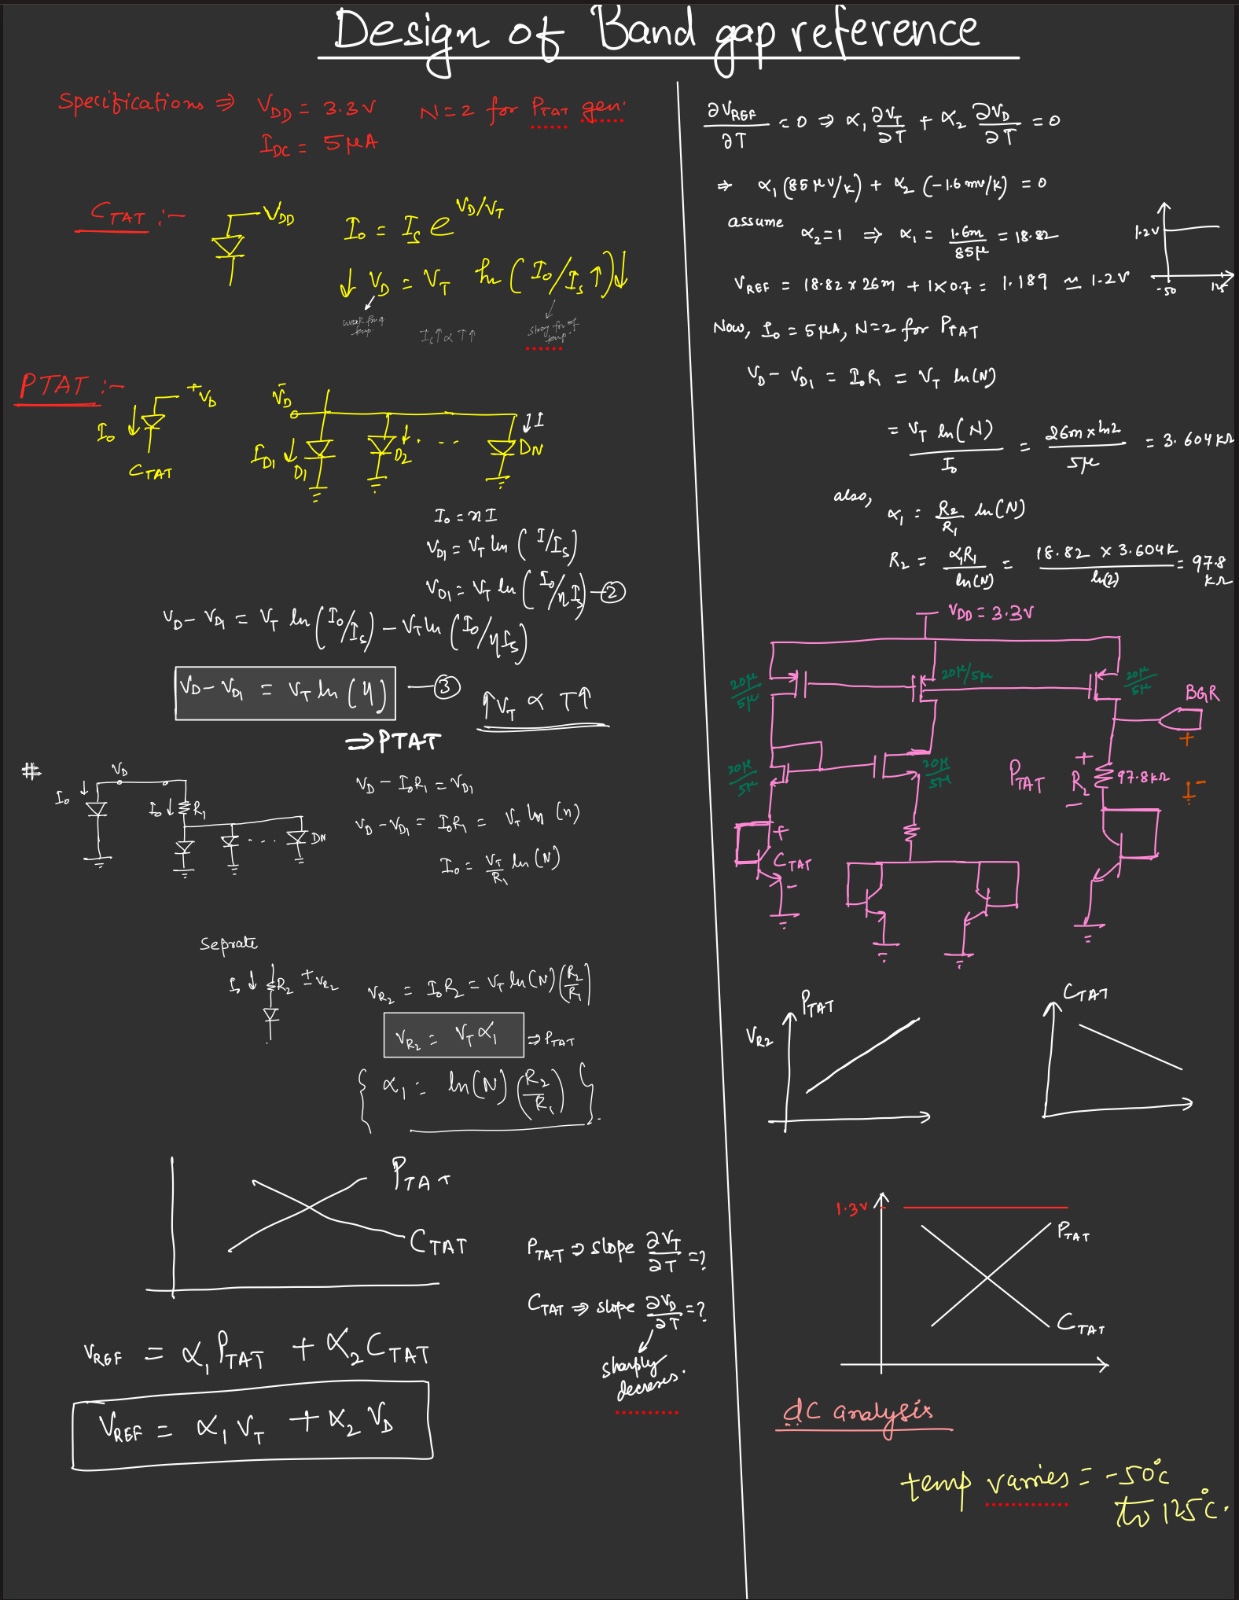 Design of Band gap reference
Specifications ⇒ VDD = 3.3V N=2 for PTAT gen.
IDC = 5μA
CTAT :-
VDD
I₀ = Is e^(VD/VT)
↓ VD = VT ln (I₀/Is ↑)↓
Is↑ ∝ T↑↑
PTAT :-
+VD
I₀ ↓
CTAT
VD
ID1 ↓ D1 D2 ↓ . . . . ↓I DN
I₀ = nI
VD1 = VT ln (I/Is)
VD1 = VT ln (I₀/nIs) -②
VD - VD1 = VT ln (I₀/Is) - VT ln (I₀/ηIs)
VD - VD1 = VT ln (η) -③
↑VT ∝ T↑
⇒ PTAT
#
I₀ ↓ VD I₀ ↓ R1 . . . . DN
VD - I₀R1 = VD1
VD - VD1 = I₀R1 = VT ln (n)
I₀ = VT/R1 ln (N)
Seprate
I₀ ↓ R2 ± VR2
VR2 = I₀R2 = VT ln(N) (R2/R1)
VR2 = VT α1 ⇒ PTAT
{ α1 = ln(N) (R2/R1) }
PTAT
CTAT
PTAT ⇒ slope ∂VT/∂T = ?
CTAT ⇒ slope ∂VD/∂T = ?
sharply
decreses.
VREF = α1 PTAT + α2 CTAT
VREF = α1 VT + α2 VD
∂VREF/∂T = 0 ⇒ α1 ∂VT/∂T + α2 ∂VD/∂T = 0
⇒ α1 (85 μV/K) + α2 (-1.6 mV/K) = 0
assume α2 = 1 ⇒ α1 = 1.6m/85μ = 18.82
1.2V
-50
VREF = 18.82 x 26m + 1x0.7 = 1.189 ≃ 1.2V
Now, I₀ = 5μA, N=2 for PTAT
VD - VD1 = I₀R1 = VT ln(N)
= VT ln(N)/I₀ = 26m x ln2/5μ = 3.604kΩ
also, α1 = R2/R1 ln(N)
R2 = αR1/ln(N) = 18.82 x 3.604K/ln(2) = 97.8 kΩ
VDD = 3.3V
20μ/5μ 20μ/5μ 20μ/5μ
BGR
+
-
20μ/5μ 20μ/5μ
PTAT + R2 - 97.8kΩ
+
CTAT
-
VR2 PTAT
CTAT
1.3V
PTAT
CTAT
dC analysis
temp varries = -50°C
to 125°C.